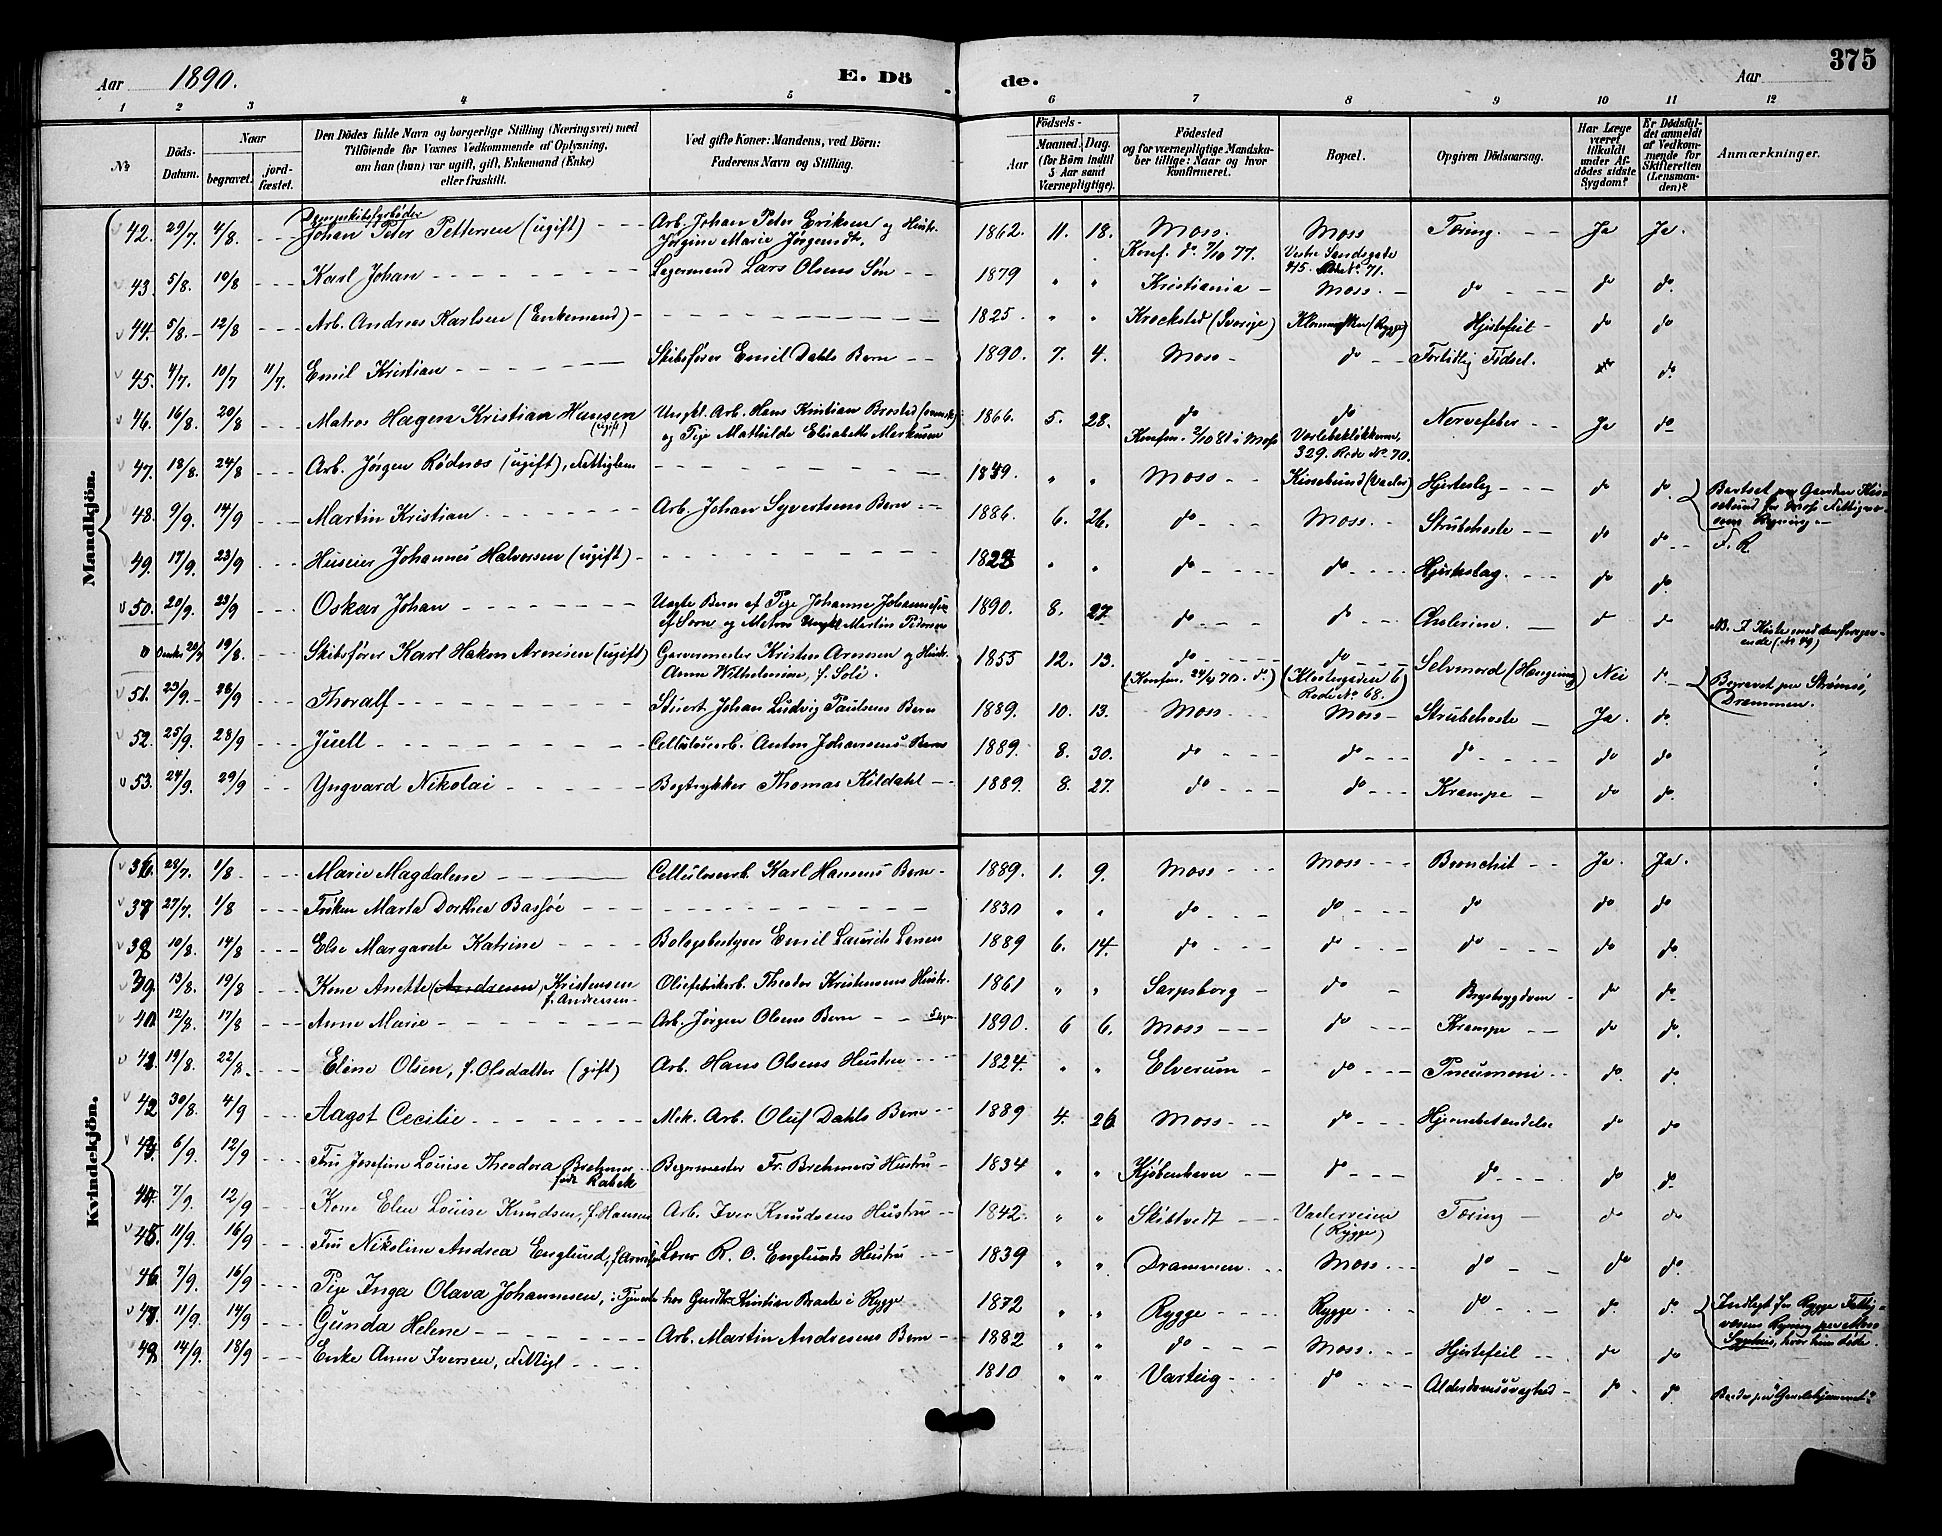 375
Aar 1890. E. Dö de. Aar
1 2 3 4 5 6 7 8 9 10 11 12
No
Döds-Datum.
Naar begravet. jordfæstet.
Den Dödes fulde Navn og borgerlige Stilling (Næringsvei) med
Tilföiende for Voxnes Vedkommende af Oplysning,
om han (hun) var ugift, gift, Enkemand (Enke)
eller fraskilt.
Ved gifte Koner: Mandens, ved Börn:
Faderens Navn og Stilling.
Födsels-
Aar Maaned. Dag.
(for Börn indtil
5 Aar samt
Værnepligtige).
Födested
og for værnepligtige Mandska-
ber tillige: Naar og hvor
konfirmeret.
Bopæl.
Opgiven Dödsaarsag.
Har Læge
været
tilkaldt
under Af-
dödes sidste
Sygdom?
Er Dödsfal-
det anmeldt
af Vedkom-
mende for
Skifteretten
(Lensman-
den)?
Anmærkninger.
Mandkjön.
42. 29/7. 4/8. Johan Peter Pettersen (ugift) Arb. Johan Peter Eriksen og Hustr. Jørgine Marie 1862. 11. 18. Moss. Konf. do 7/10 77. Moss Vestre Sandsgate 415. 71. Tæring. Ja Ja.
43. 5/8. 10/8 Karl Johan Lars Olsens Søn 1879 " " Kristiania Moss. do do do
44. 5/8. 12/8 Arb. Andreas Karlsen (Enkemand) 1825. " " Krockstad (Sverige) (Rygge) Hjertefeil do do
45. 4/7. 10/7 11/7. Emil Kristian Skibsfører Emil Dahls Barn 1890. 7. 4. Moss do Fortidlig Fødsel. do
46. 16/8. 20/8 Matros Hagen Kristian Hansen (ugift) Ungkl. Arb. Hans Kristian og Pige Mathilde Elisabeth 1866. 5. 28. do Konfm. 2/10 81 i Moss do 329. Rode No 70. Nervefeber Ja do
47. 18/8. 24/8 Arb. Jørgen Rødnæs (ugift), Fattiglem 1849. " " Moss (Vaaler) Hjerteslag do do
48. 9/9. 14/9 Martin Kristian Arb. Johan Syvertsens Barn 1886. 6. 26. do Moss. Strubehoste do do F. R.
49. 17/9. 23/9 Huseier Johannes Halvorsen (ugift) 1828 " " do do Hjerteslag. do do
50. 20/9. 23/9 Oskar Johan Uægte Barn af Pige Johanne og Matros Ungkl Martin Pedersen 1890. 8. 27. do do Cholerine. do do
0 19/8. Skibsfører Karl Hakon Arnesen (ugift) Garvermester Kristen Arnesen og Hustr. Anne Wilhelmine, f. Soli. 1855 12. 13. do (Konfm. 24/4 70. do) do (Klostergaden 6) Rode No 68.) Selvmord (Hængning) Nei do Begravet paa Strømsø, Drammen.
51. 23/9. 28/9 Thoralf Stuert Johan Ludvig Paulsens Barn 1889. 10. 13. Moss Moss Strubehoste Ja. do
52. 25/9. 28/9 Juell Cellulosearb. Anton Johansens Barn 1889. 8. 30. do do do do do
53. 24/9. 29/9 Yngvard Nikolai Bogtrykker Thomas Kildahl 1889. 8. 27. do do Krampe do do
Kvindekjön.
36. 28/7. 1/8 Marie Magdalene Cellulosearb. Karl Hansens Barn 1889. 1. 9. Moss Moss Bronchit Ja. Ja.
37 27/7. 1/8 Frøken Marta Dorthea Bassøe 1830 " " do do do do do
38. 10/8. 14/8 Else Margarete Katrine Bologsbestyrer Emil Laurits 1889 6. 14. do do do do do
39. 13/8. 19/8 Kone Anette Kristensen f. Andersen Oliefabrikarb. Theodor Kristensens Hustr. 1861 " " Sarpsborg do Brystsygdom do do
40. 12/8. 17/8 Anna Marie Arb. Jørgen Olsens Barn 1890. 6 6. Moss do Krampe do do
41. 19/8. 22/8. Eline Olsen, f. Olsdatter (gift) Arb. Hans Olsens Hustru 1824. " " Elverum do Pneumoni do. do.
42 30/8. 4/9 Aagot Cecilie Mek. Arb. Oluf Dahls Barn 1889 4. 26 Moss do Hjernebetændelse do do
43. 6/9. 12/9 Fru Josefine Louise Theodora Brehmer født Rabek Bagermester Fr. Brehmers Hustru 1834 " " Kjøbenhavn do do do do
44. 7/9. 12/9 Kone Elen Louise Knudsen, f. Hansen Arb. Iver Knudsens Hustru 1842. " " Skibtvedt Vaalerveien (Rygge) Tæring do do
45. 11/9. 16/9 Fru Nikoline Andrea Englund, Lærer R. O. Englunds Hustru 1839 " " Drammen Moss. do do do
46. 7/9. 16/9 Pige Inga Olava Johannesen, i Tjeneste hos Kristian i Rygge 1872 " " Rygge Rygge do do do Indlagt for Rygge Fattigvæsens Regning paa Moss Sygehus, hvor hun døde.
47. 11/9. 14/9 Gunda Helene Arb. Martin Andresens Barn 1882 " " do Moss. Hjertefeil do do
48 14/9. 18/9 Enke Anne Iversen, Fattigl 1810 " " Varteig do Alderdomssvaghed do do